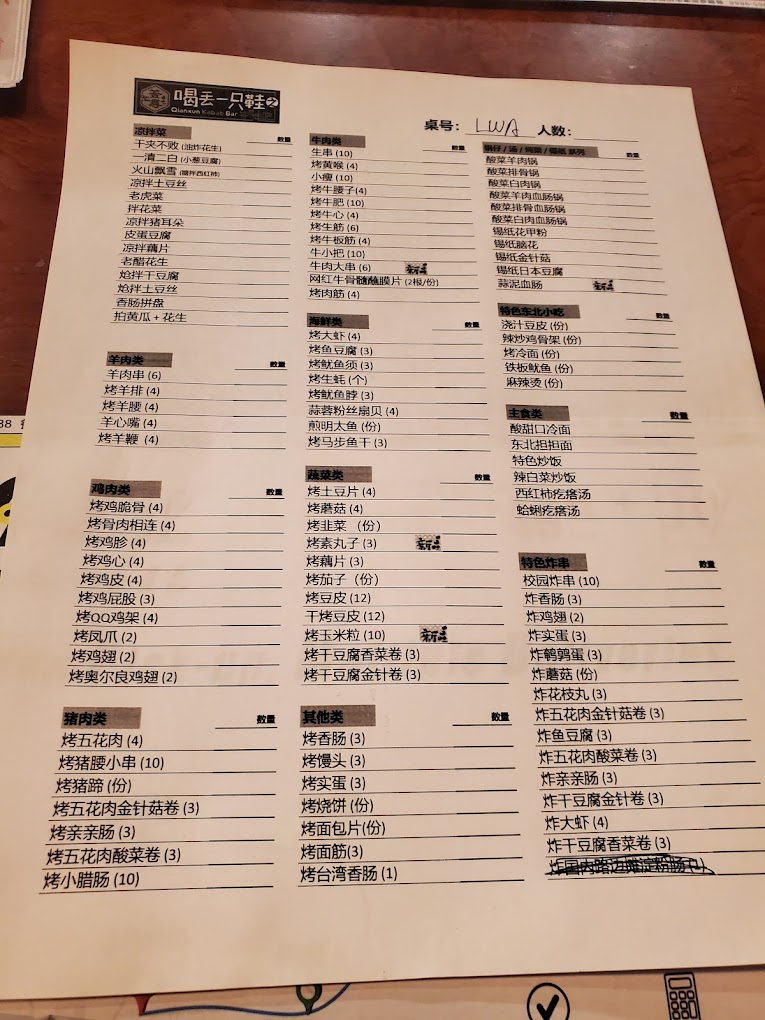 喝丢一只鞋之
Qianxun Kebab Bar
桌号: LWA 人数:
凉拌菜 数量
干夹不败 (油炸花生)
一清二白 (小葱豆腐)
火山飘雪 (糖拌西红柿)
凉拌土豆丝
老虎菜
拌花菜
凉拌猪耳朵
皮蛋豆腐
凉拌藕片
老醋花生
炝拌干豆腐
炝拌土豆丝
香肠拼盘
拍黄瓜 + 花生
羊肉类 数量
羊肉串 (6)
烤羊排 (4)
烤羊腰 (4)
羊心嘴 (4)
烤羊鞭 (4)
鸡肉类 数量
烤鸡脆骨 (4)
烤骨肉相连 (4)
烤鸡胗 (4)
烤鸡心 (4)
烤鸡皮 (4)
烤鸡屁股 (3)
烤QQ鸡架 (4)
烤凤爪 (2)
烤鸡翅 (2)
烤奥尔良鸡翅 (2)
猪肉类 数量
烤五花肉 (4)
烤猪腰小串 (10)
烤猪蹄 (份)
烤五花肉金针菇卷 (3)
烤亲亲肠 (3)
烤五花肉酸菜卷 (3)
烤小腊肠 (10)
牛肉类 数量
生串 (10)
烤黄喉 (4)
小瘦 (10)
烤牛腰子(4)
烤牛肥 (10)
烤牛心 (4)
烤生筋 (6)
烤牛板筋 (4)
牛小把 (10)
牛肉大串 (6) 新品
网红牛骨髓髓膜片 (2根/份)
烤肉筋 (4)
海鲜类 数量
烤大虾 (4)
烤鱼豆腐 (3)
烤鱿鱼须 (3)
烤生蚝 (个)
烤鱿鱼脖 (3)
蒜蓉粉丝扇贝 (4)
煎明太鱼 (份)
烤马步鱼干 (3)
蔬菜类 数量
烤土豆片 (4)
烤蘑菇 (4)
烤韭菜 （份）
烤素丸子 (3) 新品
烤藕片 (3)
烤茄子（份）
烤豆皮 (12)
干烤豆皮 (12)
烤玉米粒 (10) 新品
烤干豆腐香菜卷 (3)
烤干豆腐金针卷 (3)
其他类 数量
烤香肠 (3)
烤馒头 (3)
烤实蛋 (3)
烤烧饼 (份)
烤面包片(份)
烤面筋(3)
烤台湾香肠 (1)
数量
酸菜羊肉锅
酸菜排骨锅
酸菜白肉锅
酸菜羊肉血肠锅
酸菜排骨血肠锅
酸菜白肉血肠锅
锡纸花甲粉
锡纸脑花
锡纸金针菇
锡纸日本豆腐
蒜泥血肠 新品
特色东北小吃 数量
浇汁豆皮 (份)
辣炒鸡骨架 (份)
烤冷面 (份)
铁板鱿鱼 (份)
麻辣烫 (份)
主食类 数量
酸甜口冷面
东北担担面
特色炒饭
辣白菜炒饭
西红柿疙瘩汤
蛤蜊疙瘩汤
特色炸串 数量
校园炸串 (10)
炸香肠 (3)
炸鸡翅 (2)
炸实蛋 (3)
炸鹌鹑蛋 (3)
炸蘑菇 (份)
炸花枝丸 (3)
炸五花肉金针菇卷 (3)
炸鱼豆腐 (3)
炸五花肉酸菜卷 (3)
炸亲亲肠 (3)
炸干豆腐金针卷 (3)
炸大虾 (4)
炸干豆腐香菜卷 (3)
炸国内路边摊淀粉肠 (1)